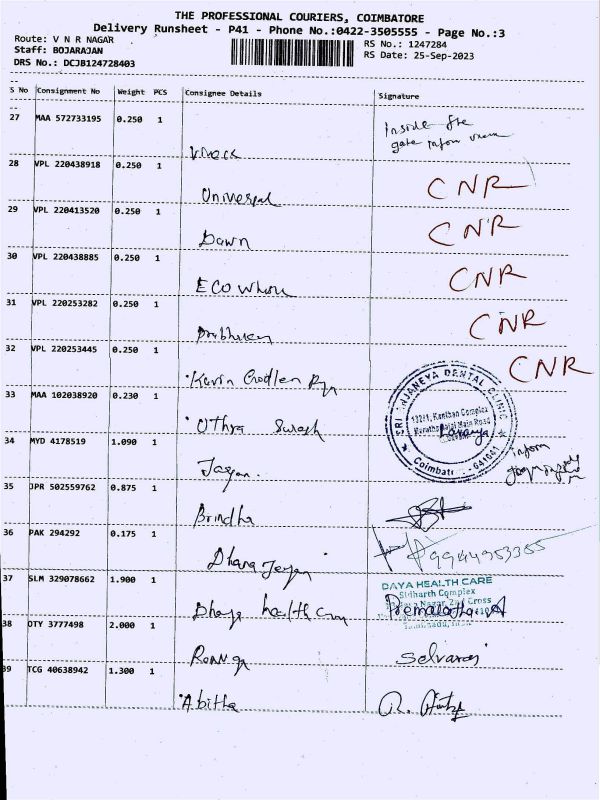 THE PROFESSIONAL COURIERS, COIMBATORE
Delivery Runsheet - P41 - Phone No.:0422-3505555 - Page No.:3
Route: V N R NAGAR
RS No.: 1247284
Staff: BOJARAJAN
RS Date: 25-Sep-2023
DRS No.: DCJB124728403
S No Consignment No Weight PCS Consignee Details Signature
27 MAA 572733195 0.250 1
Inside the
gate inform
Viveck
28 VPL 220438918 0.250 1
Universal CNR
29 VPL 220413520 0.250 1
Dawn CNR
30 VPL 220438885 0.250 1
ECO CNR
31 VPL 220253282 0.250 1
CNR
32 VPL 220253445 0.250 1
Kavin CNR
33 MAA 102038920 0.230 1
SRI ANJANEYA DENTAL CLINIC
Kanthan Complex
Main Road
Lavanya
Coimbat 641041
Uthra
34 MYD 4178519 1.090 1
inform
35 JPR 502559762 0.875 1
Brindha
36 PAK 294292 0.175 1
9944953355
Dhana
37 SLM 329078662 1.900 1
DAYA HEALTH CARE
Sidharth Complex
Nagar 2nd Cross
Premalatha. A
health
38 OTY 3777498 2.000 1
Selvaraj
39 TCG 40638942 1.300 1
Abitha R.